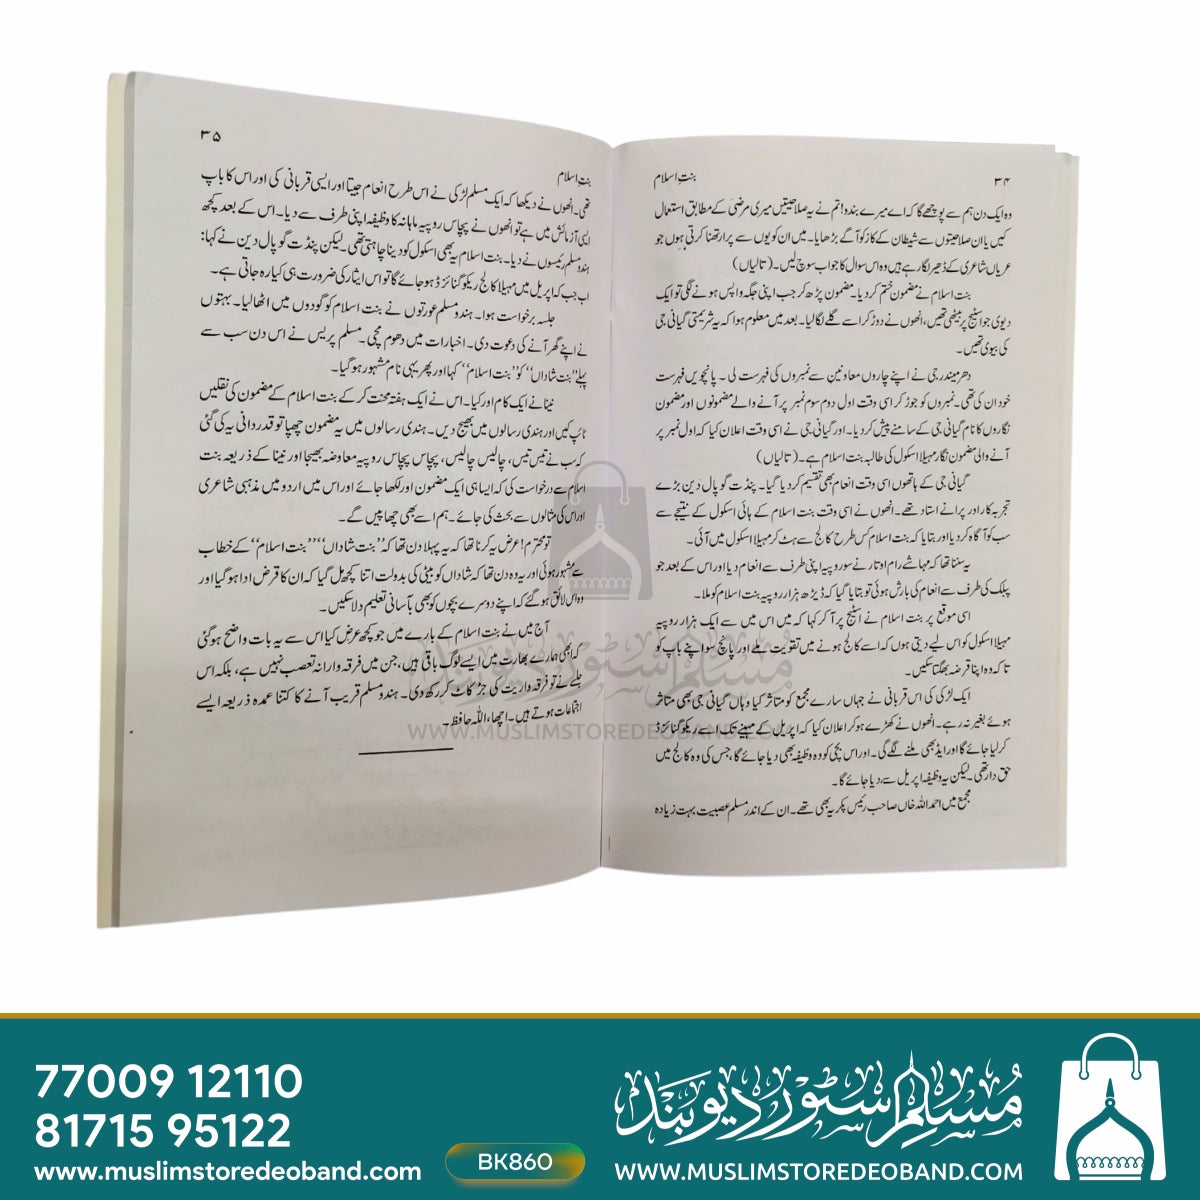 ۳۴
بنتِ اسلام
وہ ایک دن ہم سے پوچھے گا کہ اے میرے بندو! تم نے یہ صلاحیتیں میری مرضی کے مطابق استعمال
کیں یا ان صلاحیتوں سے شیطان کے کاز کو آگے بڑھایا۔ میں ان کویوں سے پرارتھنا کرتی ہوں جو
عریاں شاعری کے ڈھیر لگا رہے ہیں وہ اس سوال کا جواب سوچ لیں۔ (تالیاں)
بنت اسلام نے مضمون ختم کر دیا۔ مضمون پڑھ کر جب اپنی جگہ واپس ہونے لگی تو ایک
دیوی جو اسٹیج پر بیٹھی تھیں، انھوں نے دوڑ کر اسے گلے لگا لیا۔ بعد میں معلوم ہوا کہ یہ شریمتی گیانی جی
کی بیوی تھیں۔
دھرمیندر جی نے اپنے چاروں معاونین سے نمبروں کی فہرست لی۔ پانچویں فہرست
خود ان کی تھی۔ نمبروں کو جوڑ کر اسی وقت اول دوم سوم نمبر پر آنے والے مضمونوں اور مضمون
نگاروں کا نام گیانی جی کے سامنے پیش کر دیا۔ اور گیانی جی نے اسی وقت اعلان کیا کہ اول نمبر پر
آنے والی مضمون نگار مہیلا اسکول کی طالبہ بنت اسلام ہے۔ (تالیاں)
گیانی جی کے ہاتھوں اسی وقت انعام بھی تقسیم کر دیا گیا۔ پنڈت گوپال دین بڑے
تجربہ کار اور پرانے استاد تھے۔ انھوں نے اسی وقت بنت اسلام کے ہائی اسکول کے نتیجے سے
سب کو آگاہ کر دیا اور بتایا کہ بنت اسلام کس طرح کالج سے ہٹ کر مہیلا اسکول میں آئی۔
یہ سننا تھا کہ مہاشے رام اوتار نے سو روپیہ اپنی طرف سے انعام دیا اور اس کے بعد جو
پبلک کی طرف سے انعام کی بارش ہوئی تو بتایا گیا کہ ڈیڑھ ہزار روپیہ بنت اسلام کو ملا۔
اسی موقع پر بنت اسلام نے اسٹیج پر آ کر کہا کہ میں اس میں سے ایک ہزار روپیہ
مہیلا اسکول کو اس لیے دیتی ہوں کہ اسے کالج ہونے میں تقویت ملے اور پانچ سو اپنے باپ کو
تاکہ وہ اپنا قرضہ بھگتا سکیں۔
ایک لڑکی کی اس قربانی نے جہاں سارے مجمع کو متاثر کیا وہاں گیانی جی بھی متاثر
ہوئے بغیر نہ رہے۔ انھوں نے کھڑے ہو کر اعلان کیا کہ اپریل کے مہینے تک اسے ریکوگنائزڈ
کر لیا جائے گا اور ایڈ بھی ملنے لگے گی۔ اور اس بچی کو وہ وظیفہ بھی دیا جائے گا، جس کی وہ کالج میں
حق دار تھی۔ لیکن یہ وظیفہ اپریل سے دیا جائے گا۔
مجمع میں احمد اللہ خاں صاحب رئیس پکریہ بھی تھے۔ ان کے اندر مسلم عصبیت بہت زیادہ
۳۵
بنتِ اسلام
تھی۔ انھوں نے دیکھا کہ ایک مسلم لڑکی نے اس طرح انعام جیتا اور ایسی قربانی کی اور اس کا باپ
ایسی آزمائش میں ہے تو انھوں نے پچاس روپیہ ماہانہ کا وظیفہ اپنی طرف سے دیا۔ اس کے بعد کچھ
ہندو مسلم رئیسوں نے دیا۔ بنت اسلام یہ بھی اسکول کو دینا چاہتی تھی۔ لیکن پنڈت گوپال دین نے کہا:
اب جب کہ اپریل میں مہیلا کالج ریکوگنائزڈ ہو جائے گا تو اس ایثار کی ضرورت ہی کیا رہ جاتی ہے۔
جلسہ برخواست ہوا۔ ہندو مسلم عورتوں نے بنت اسلام کو گودوں میں اٹھا لیا۔ بہتوں
نے اپنے گھر آنے کی دعوت دی۔ اخبارات میں دھوم مچی۔ مسلم پریس نے اس دن سب سے
پہلے ”بنت شاداں“ کو ”بنت اسلام“ کہا اور پھر یہی نام مشہور ہو گیا۔
نینا نے ایک کام اور کیا۔ اس نے ایک ہفتہ محنت کر کے بنت اسلام کے مضمون کی نقلیں
ٹائپ کیں اور ہندی رسالوں میں بھیج دیں۔ ہندی رسالوں میں یہ مضمون چھپا تو قدردانی یہ کی گئی
کہ سب نے تیس تیس، چالیس چالیس، پچاس پچاس روپیہ معاوضہ بھیجا اور نینا کے ذریعہ بنت
اسلام سے درخواست کی کہ ایسا ہی ایک مضمون اور لکھا جائے اور اس میں اردو میں مذہبی شاعری
اور اس کی مثالوں سے بحث کی جائے۔ ہم اسے بھی چھاپیں گے۔
تو محترم! عرض یہ کرنا تھا کہ یہ پہلا دن تھا کہ ”بنت شاداں“ ”بنت اسلام“ کے خطاب
سے مشہور ہوئی اور یہ وہ دن تھا کہ شاداں کو بیٹی کی بدولت اتنا کچھ مل گیا کہ ان کا قرض ادا ہو گیا اور
وہ اس لائق ہو گئے کہ اپنے دوسرے بچوں کو بھی بآسانی تعلیم دلا سکیں۔
آج میں نے بنت اسلام کے بارے میں جو کچھ عرض کیا اس سے یہ بات واضح ہو گئی
کہ ابھی ہمارے بھارت میں ایسے لوگ باقی ہیں، جن میں فرقہ وارانہ تعصب نہیں ہے، بلکہ اس
جلسے نے تو فرقہ واریت کی جڑ کاٹ کر رکھ دی۔ ہندو مسلم قریب آنے کا کتنا عمدہ ذریعہ ایسے
اجتماعات ہوتے ہیں۔ اچھا، اللہ حافظ۔
مسلم سٹور دیوبند
WWW.MUSLIMSTOREDEOBAND.COM
77009 12110
81715 95122
www.muslimstoredeoband.com
BK860
مسلم سٹور دیوبند
WWW.MUSLIMSTOREDEOBAND.COM